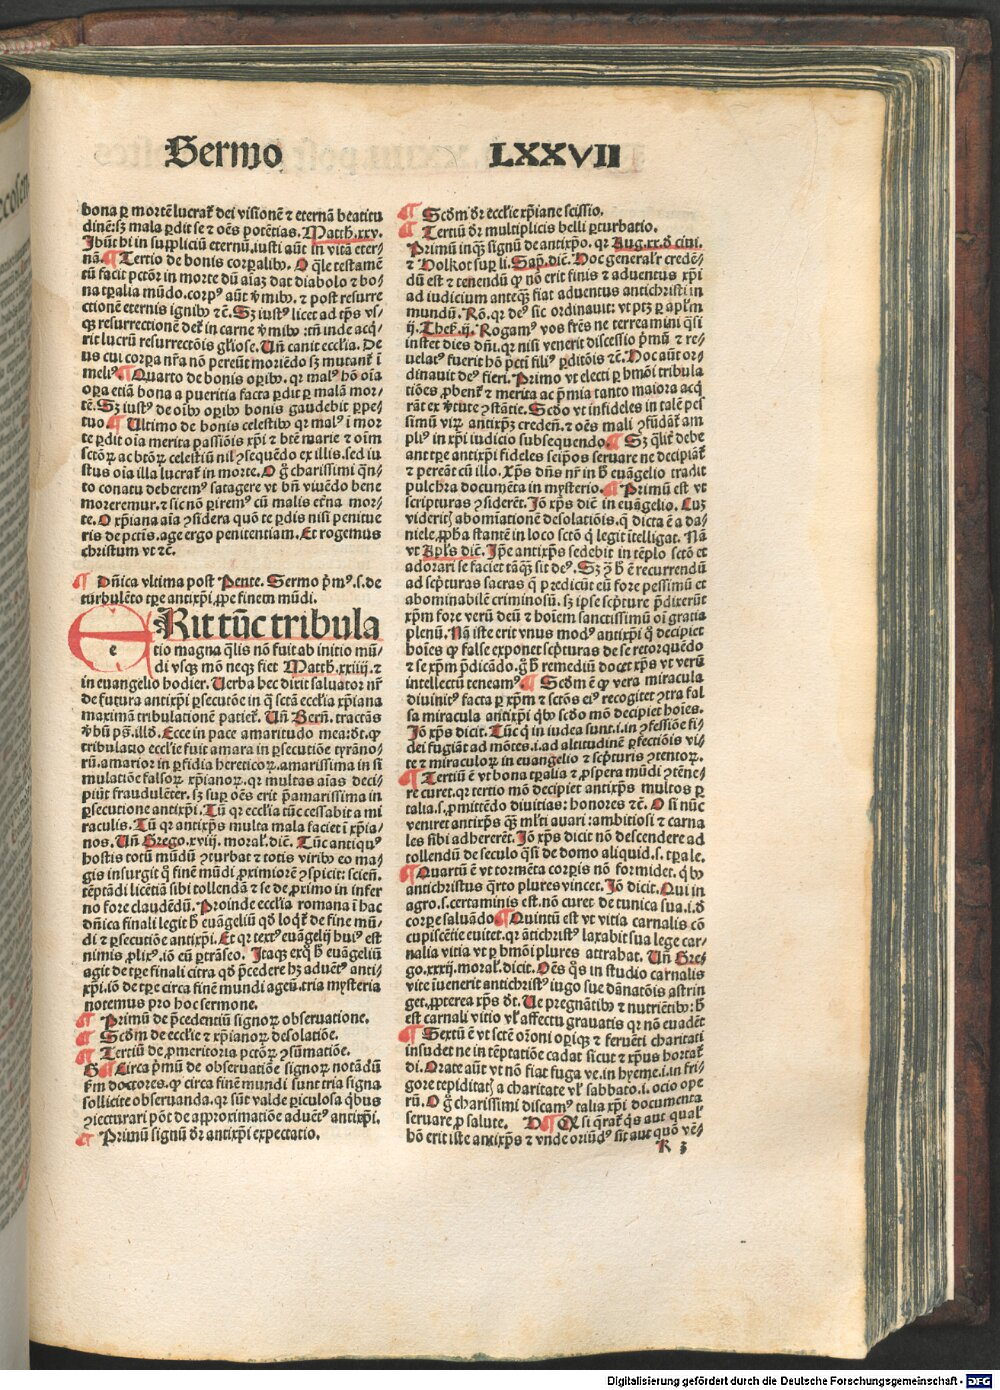 Sermo LXXVII
bona ꝑ mortē lucrat᷑ dei visionē ⁊ eternā beatitu
dinē: sꝫ mala ꝑdit se ⁊ oēs potētias. Matth. xxv.
Ibūt hi in suppliciū eternū, iusti aūt in vitā eter⸗
nā. ¶ Tertio de bonis corꝑalibꝰ. O q̄le testamē
tū facit pctōr in morte dū aīaꝫ dat diabolo ⁊ bo⸗
na tꝑalia mūdo. corpꝰ aūt ꝟmibꝰ. ⁊ post resurre
ctionē eternis ignibꝰ ⁊c̄. Sꝫ iustꝰ licet ad tp̄s vs⸗
qꝫ resurrectionē det᷑ in carne ꝟmibꝰ: tn̄ inde acq̄⸗
rit lucrū resurrectōis gl̄iose. Vn̄ canit eccl̄ia. De
us cui corꝑa nr̄a nō pereūt moriēdo sꝫ mutant᷑ ī
meliꝰ. ¶ Quarto de bonis oꝑibꝰ. qr malꝰ hō oīa
oꝑa etiā bona a pueritia facta ꝑdit ꝑ malā mor⸗
tē. Sꝫ iustꝰ de oībꝰ oꝑibꝰ bonis gaudebit ꝑpe⸗
tuo. ¶ Ultimo de bonis celestibꝰ qr malꝰ ī mor
te ꝑdit oīa merita passiōis xp̄i ⁊ btē marie ⁊ oīm
sctōꝝ ac btōꝝ celestiū nil ꝯsequēdo ex illis. sed iu
stus oīa illa lucrat᷑ in morte. O g̊ charissimi q̄n⸗
to conatu deberemꝰ satagere vt bn̄ viuēdo bene
moreremur. ⁊ sic nō ꝑiremꝰ cū malis etn̄a mor⸗
te. O xp̄iana aīa ꝯsidera quō te ꝑdis nisi penitue
ris de pctis. age ergo penitentiam. Et rogemus
christum vt ⁊c̄.
¶ Dn̄ica vltima post Pente. Sermo pͥmꝰ. s. de
turbulēto tꝑe antixp̄i, ꝓpe finem mūdi.
e
ERit tūc tribula
tio magna q̄lis nō fuit ab initio mū⸗
di vsqꝫ mō neqꝫ fiet Matth. xxiiij. ⁊
in euangelio hodier. Verba hec dixit saluator nr̄
de futura antixp̄i ꝑsecutōe in qͣ sctā eccl̄ia xp̄iana
maximā tribulationē patiet᷑. Vn̄ Bern. tractās
ꝟbū ps̄. illd̄. Ecce in pace amaritudo mea: dt̄. ꝙ
tribulatio eccl̄ie fuit amara in ꝑsecutiōe tyrāno⸗
rū. amarior in ꝑfidia hereticoꝝ. amarissima in si
mulatiōe falsoꝝ xp̄ianoꝝ. qr multas aīas deci⸗
piūt fraudulēter. sꝫ suꝑ oēs erit p̄amarissima in
ꝑsecutione antixp̄i. Tū qr eccl̄ia tūc cessabit a mi
raculis. Tū qr antixp̄s multa mala faciet ī xp̄ia⸗
nos. Vn̄ Grego. xviij. moral᷑. dic̄. Tūc antiquꝰ
hostis totū mūdū ꝯturbat ⁊ totis viribꝰ eo ma⸗
gis insurgit qͦ finē mūdi ꝓximiorē ꝯspicit: sciēn̄.
tēptādi licētiā sibi tollendā ⁊ se de ꝓximo in infer
no fore claudēdū. Proinde eccl̄ia romana ī hac
dn̄ica finali legit h̊ euāgeliū qd̄ loqͥt᷑ de fine mū⸗
di ⁊ ꝑsecutiōe antixp̄i. Et qr textꝰ euāgelij huiꝰ est
nimis ꝓlixꝰ. iō eū ꝑtrāseo. Itaqꝫ ex qͦ h̊ euāgeliū
agit de tꝑe finali citra qd̄ p̄cedere hꝫ aduētꝰ anti⸗
xp̄i. iō de tꝑe circa finē mundi ageū. tria mysteria
notemus pro hoc sermone.
¶ Primū de p̄cedentiū signoꝝ obseruatione.
¶ Scd̄m de eccl̄ie ⁊ xp̄ianoꝝ desolatiōe.
¶ Tertiū de ꝓmeritoria pctōꝝ ꝯsūmatiōe.
¶ Circa pͥmū de obseruatiōe signoꝝ notādū
ẜm doctores. ꝙ circa finē mundi sunt tria signa
sollicite obseruanda. qr sūt valde ꝑiculosa qͥbus
ꝯiecturari pōt de approximatiōe aduētꝰ antixp̄i.
¶ Primū signū dr̄ antixp̄i expectatio.
¶ Scd̄m dr̄ eccl̄ie xp̄iane scissio.
¶ Tertiū dr̄ multiplicis belli ꝑturbatio.
Primū inqꝫ signū de antixp̄o. qr Aug. xx. d̄ ciui.
⁊ Holkot suꝑ li. Sap. dic̄. Hoc generalr̄ credē⸗
dū est ⁊ tenendū ꝙ nō erit finis ⁊ aduentus xp̄i
ad iudicium anteqꝫ fiat aduentus antichristi in
mundū. Rō. qr deꝰ sic ordinauit: vt ptꝫ ꝑ apl̄m
ij. Thes̄. ij. Rogamꝰ vos fr̄es ne terreamini qͣsi
instet dies dn̄i. qr nisi venerit discessio pͥmū ⁊ re⸗
uelatꝰ fuerit hō pctī filiꝰ ꝑditōis ⁊c̄. Hoc aūt or⸗
dinauit deꝰ fieri. Primo vt electi ꝑ hmōi tribula
tiōes ꝓbent᷑ ⁊ merita ac p̄mia tanto maiora acqͥ
rāt ex ꝟtute ꝯstātie. Scd̄o vt infideles in talē pes
simū viꝝ antixp̄ꝫ creden̄. ⁊ oēs mali ꝯfūdāt᷑ am
pliꝰ in xp̄i iudicio subsequendo. ¶ Sꝫ qͣlit᷑ debe
ant tꝑe antixp̄i fideles seip̄os seruare ne decipiāt᷑
⁊ pereāt cū illo. Xp̄s dn̄s nr̄ in h̊ euāgelio tradit
pulchra documēta in mysterio. ¶ Primū est vt
scripturas ꝯsiderēt. Iō xp̄s dic̄ in euāgelio. Cuꝫ
videritꝭ abomīationē desolatiōis. q̄ dicta ē a da⸗
niele ꝓpha stantē in loco sctō qͥ legit ītelligat. Nā
vt Apl̄s dic̄. Ip̄e antixp̄s sedebit in tēplo sctō et
adorari se faciet tāqꝫ sit deꝰ. Sꝫ ꝯ h̊ ē recurrendū
ad scp̄turas sacras q̄ p̄dicūt eū fore pessimū et
abominabilē criminosū. sꝫ ipse scp̄ture p̄dixerūt
xp̄m fore verū deū ⁊ hoīem sanctissimū oī gratia
plenū. Nā iste erit vnus modꝰ antixp̄i qͦ decipiet
hoīes ꝙ false exponet scp̄turas de se retorquēdo
⁊ se xp̄m p̄dicādo. g̊ h̊ remediū docet xp̄s vt verū
intellectū teneamꝰ. ¶ Scd̄m ē ꝙ vera miracula
diuinitꝰ facta ꝑ xp̄m ⁊ sctōs eiꝰ recogitet ꝯtra fal
sa miracula antixp̄i qͥbꝰ scd̄o mō decipiet hoīes.
Iō xp̄s dicit. Tūc qͥ in iudea sunt. i. in ꝯfessiōe fi⸗
dei fugiāt ad mōtes. i. ad altitudinē ꝑfectiōis vi⸗
te ⁊ miraculoꝝ in euangelio ⁊ scp̄turis ꝯtentoꝝ.
¶ Tertiū ē vt bona tꝑalia ⁊ ꝓspera mūdi ꝯtēne⸗
re curet. qr tertio mō decipiet antixp̄s multos ꝑ
talia. s. ꝓmittēdo diuitias: honores ⁊c̄. O si nūc
veniret antixp̄s qͣꝫ ml̄ti auari: ambitiosi ⁊ carna
les sibi adhererēt. Iō xp̄s dicit nō descendere ad
tollendū de seculo qͣsi de domo aliquid. s. tꝑale.
¶ Quartū ē vt tormēta corꝑis nō formidet. qͥbꝰ
antichristus qͣrto plures vincet. Iō dicit. Qui in
agro. s. certaminis est. nō curet de tunica sua. i. d̄
corꝑe saluādo. ¶ Quintū est vt vitia carnalis cō
cupiscētie euitet. qr ātichristꝰ laxabit sua lege car⸗
nalia vitia vt ꝑ hmōi plures attrahat. Vn̄ Gre⸗
go. xxxij. moral᷑. dicit. Oēs qͦs in studio carnalis
vite iuenerit antichristꝰ iugo sue dānatōis astrin
get. ꝓpterea xp̄s dt̄. Ue pregnātibꝰ ⁊ nutriētibꝰ: h̊
est carnali vitio vl᷑ affectu grauatis qr nō euadēt
¶ Sextū ē vt sctē orōni oriqͥꝫ ⁊ feruēti charitati
insudet ne in tēptatiōe cadat sicut ⁊ xp̄us hortat᷑
di. Orate aūt vt nō fiat fuga vr̄a in hyeme. i. in fri⸗
gore tepiditatꝭ a charitate vl᷑ sabbato. i. ocio ope
rū. O g̊ charissimi discamꝰ talia xp̄i documenta
seruare ꝓ salute. ¶ Qꝛ si qͣrat᷑ qͥs aut qual᷑
hō erit iste antixp̄s ⁊ vnde oriūdꝰ sit aut quō vē⸗
K 3
Digitalisierung gefördert durch die Deutsche Forschungsgemeinschaft - DFG